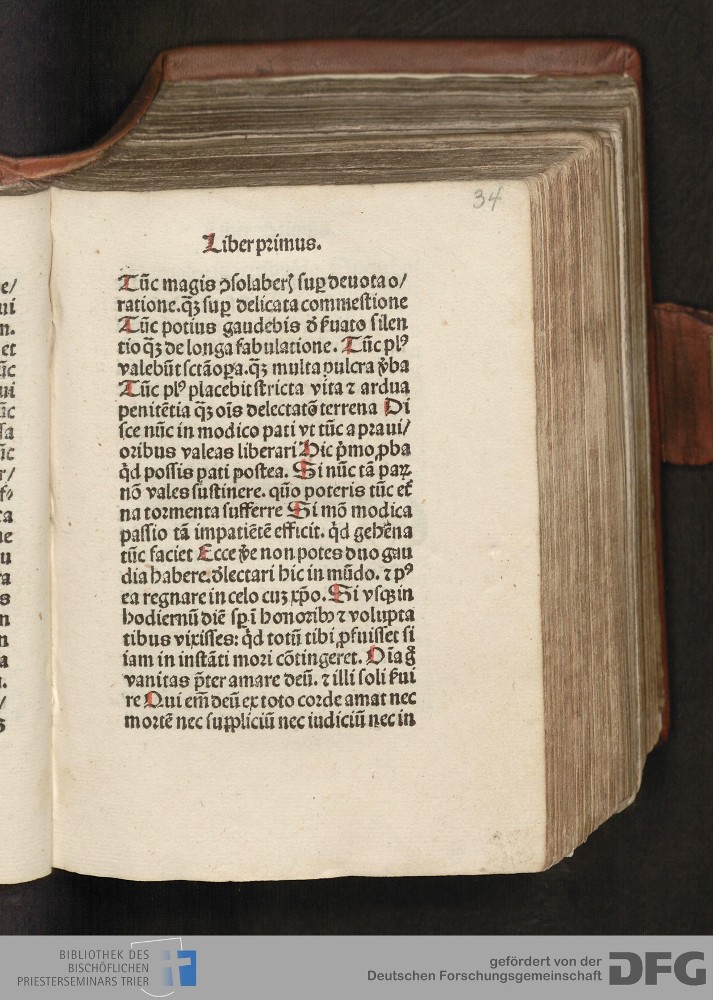 e/
ui
n.
et
ūc
ui
ūc
ūc
r/
ta
ne
u
ra
s
n
n
a
34
Liber primus.
Tūc magis ꝯsolaberꝭ suꝑ deuota o/
ratione.qꝫ suꝑ delicata commestione
Tūc potius gaudebis ð ẜuato silen
tio qꝫ de longa fabulatione. Tūc plꝰ
valebūt sctāoꝑa.qꝫ multa pulcra v̄ba
Tūc plꝰ placebit stricta vita ⁊ ardua
penitētia qꝫ oīs delectatō terrena Di
sce nūc in modico pati vt tūc a praui/
oribus valeas liberari Hic p̄mo ꝓba
q̇d possis pati postea. Si nūc tā paꝝ
nō vales sustinere. quō poteris tūc et̄
na tormenta sufferre Si mō modica
passio tā impatiētē efficit. q̇d gehēna
tūc faciet Ecce v̄e non potes duo gau
dia habere. ðlectari hic in mūdo. ⁊ pꝰ
ea regnare in celo cuꝫ xp̄o. Si vsqꝫ in
hodiernū diē sꝑ ī honoribꝰ ⁊ volupta
tibus vixisses: q̇d totū tibi ꝓfuisset si
iam in instāti mori cōtingeret. Oīa g̊
vanitas p̄ter amare deū. ⁊ illi soli ẜui
re Qui em̄ deū ex toto corde amat nec
mortē nec suppliciū nec iudiciū nec in
BIBLIOTHEK DES
BISCHÖFLICHEN
PRIESTERSEMINARS TRIER
gefördert von der
Deutschen Forschungsgemeinschaft
DFG